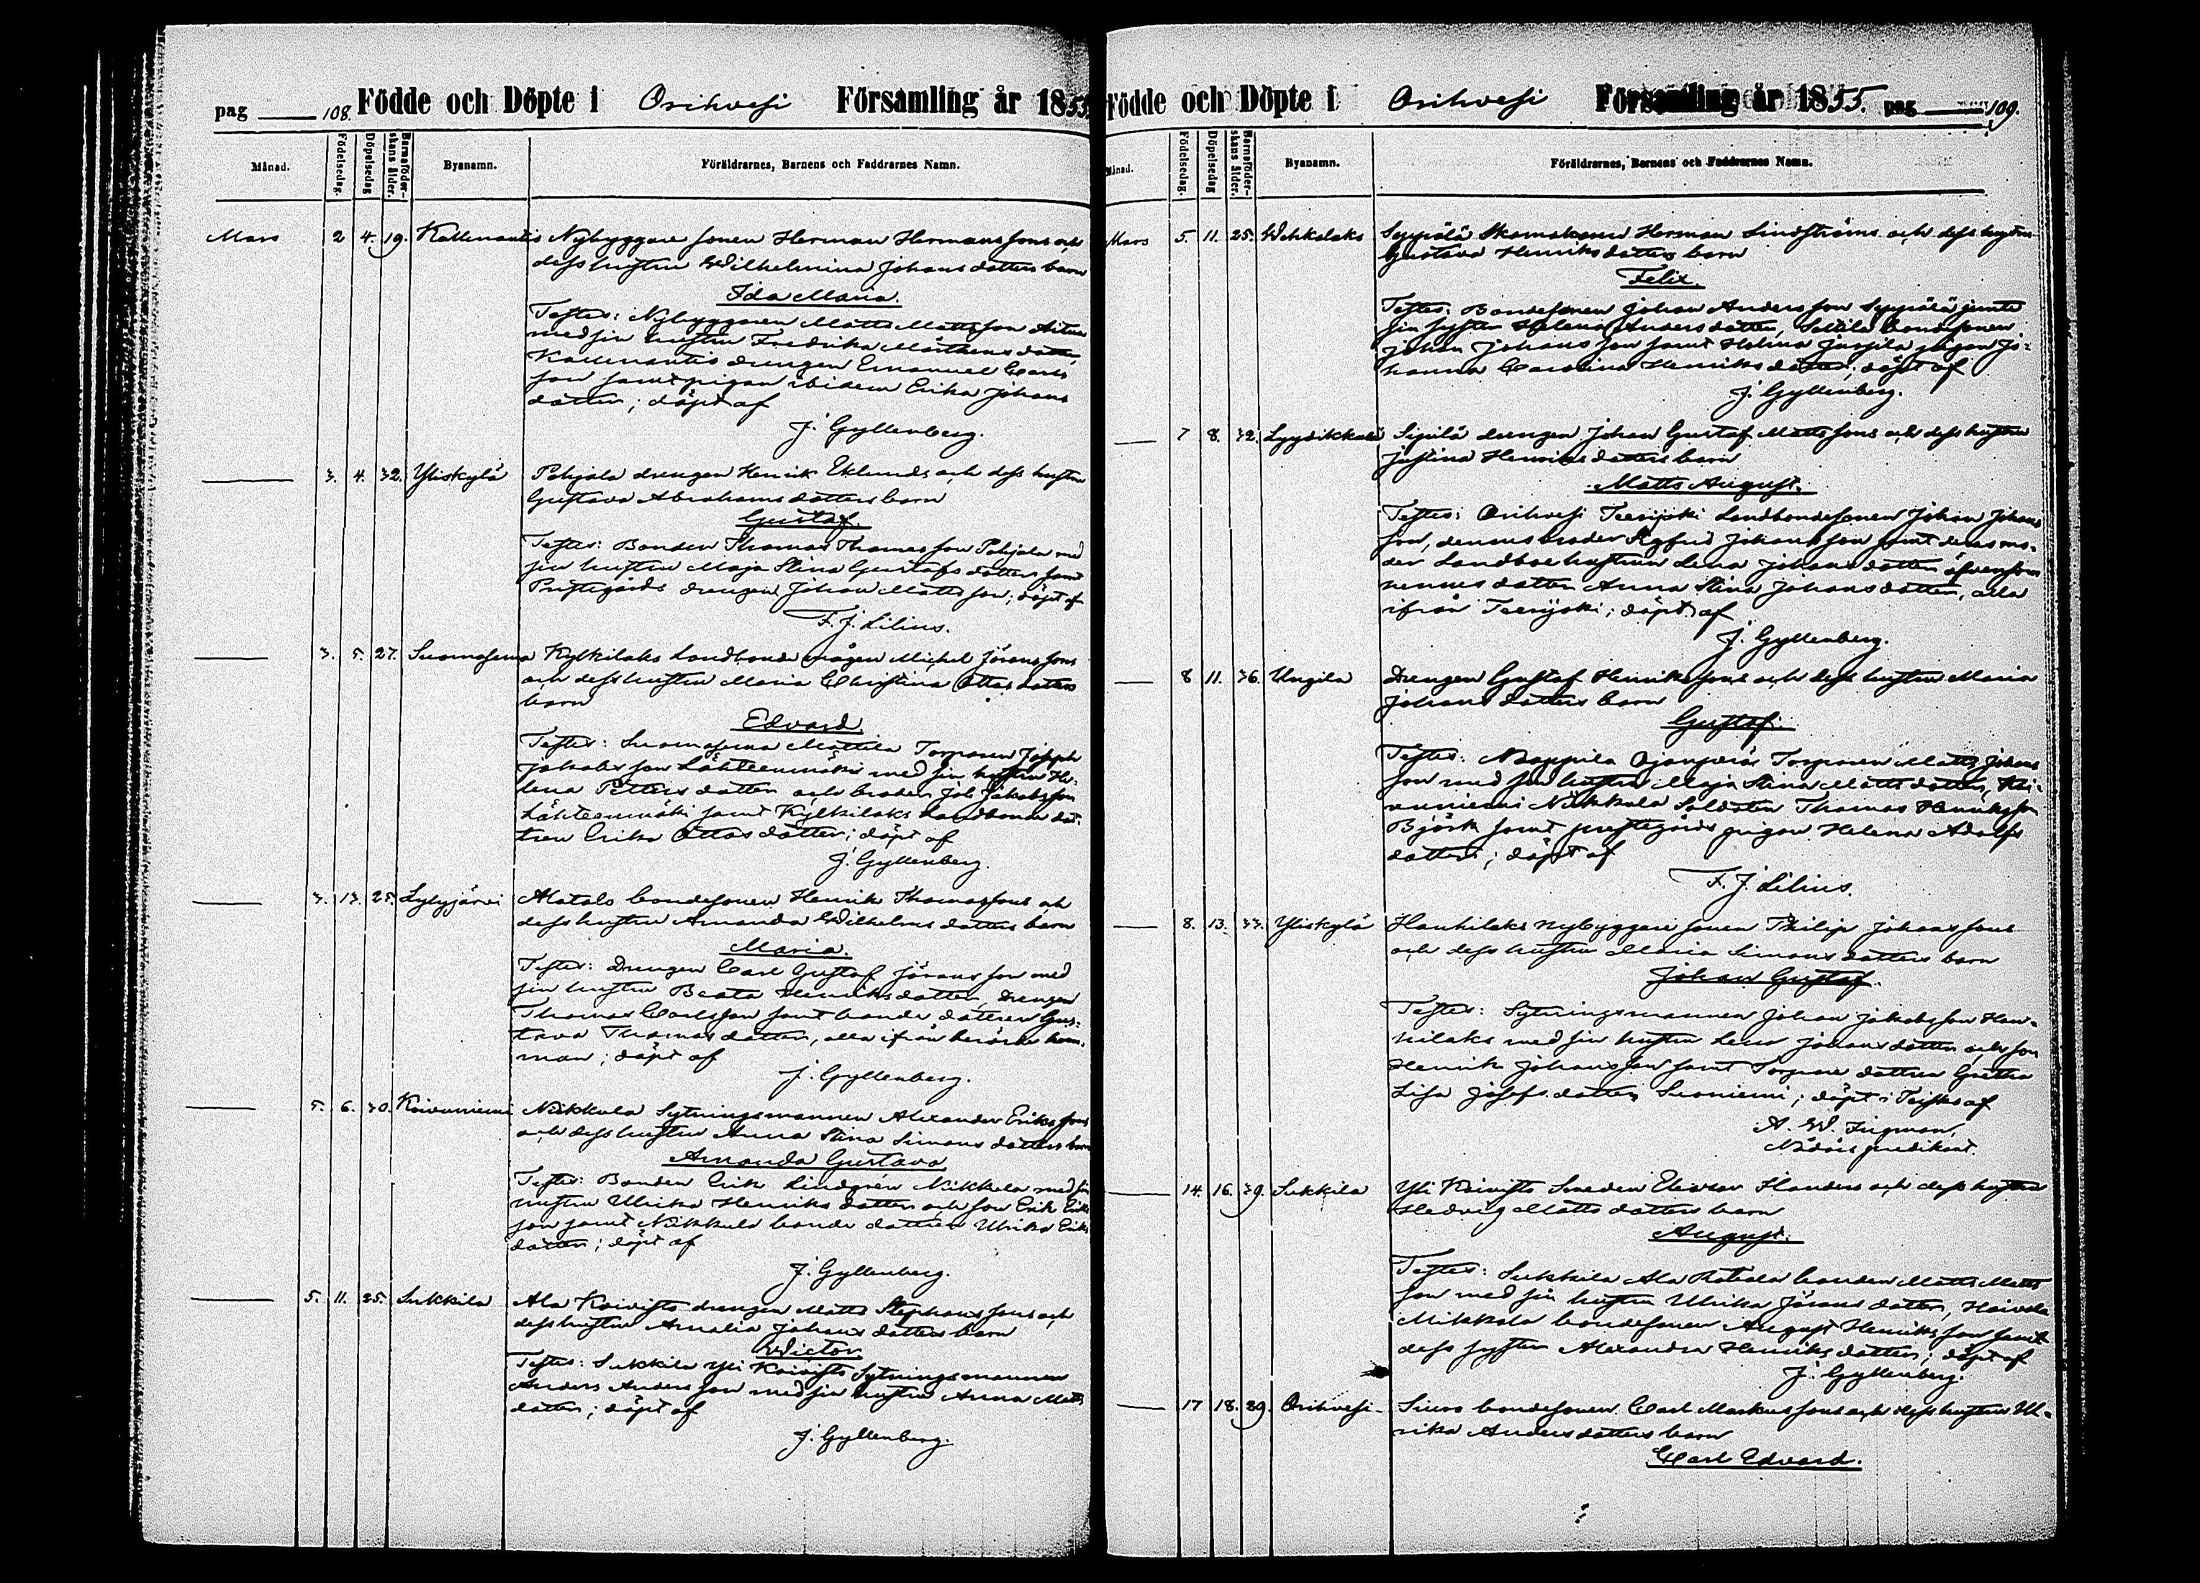 pag 108. Födde och Döpte i Orihvesi Församling år 1855.
Månad. Födelsedag. Döpelsedag Barnaföderskans ålder. Byanamn. Föräldrarnes, Barnens och Faddrarnes Namn.
Mars 2 4. 19. Nybyggare sonen Herman Hermanssons och
dess hustru Wilhelmina Johansdotters barn
Ida Maria.
Testes: Nybyggaren Matts Mattsson
med sin hustru Fredrika Mårtensdotter,
drengen Emanuel Carls
son samt pigan ibidem Erika Johans
dotter; döpt af
J. Gyllenberg.
3. 4. 32. Yliskylä Pohjala drengen Henrik Eklunds och dess hustru
Gustava Abrahamsdotters barn
Gustaf.
Testes: Bonden Thomas Thomasson Pohjala med
sin hustru Maja Stina Gustafsdotter samt
Prestegårds drengen Johan Mattsson; döpt af
F. J. Lilius.
3. 5. 27. Suomasema Kylkilaks Landbonde mågen Michel Jöranssons
och dess hustru Maria Christina Ottosdotters
barn
Edvard.
Testes: Suomasema Mattila Torparen Joseph
Jakobsson Lähteenmäki med sin hustru He-
lena Pettersdotter och broder Joh. Jakobsson
Lähteenmäki samt Kylkilaks Landbonde dot-
tren Erika Ottosdotter; döpt af
J. Gyllenberg.
3. 13. 25. Lylyjärvi Alatalo bondesonen Henrik Thomassons och
dess hustru Amanda Wilhelmsdotters barn
Maria.
Testes: Drengen Carl Gustaf Jöransson med
sin hustru Beata Henriksdotter, Drengen
Thomas Carlsson samt bonde dottren Gus-
tava Thomasdotter, alla ifrån berörde hem-
man; döpt af
J. Gyllenberg.
5. 6. 30. Koivuniemi Nikkula Sytningsmannen Alexander Erikssons
och dess hustru Anna Stina Simonsdotters barn
Amanda Gustava
Testes: Bonden Erik Lindgrén Nikkula med sin
hustru Ulrika Henriksdotter och son Erik Eriks
son samt Nikkula bonde dottren Ulrika Eriks
dotter; döpt af
J. Gyllenberg.
5. 11. 25. Sukkila Ala Koivisto drengen Matts Stephanssons och
dess hustru Amalia Johansdotters barn
Wictor
Testes: Sukkila Yli Koivisto Sytningsmannen
Anders Andersson med sin hustru Anna Matts
dotter; döpt af
J. Gyllenberg.
Födde och Döpte i Orihvesi Församling år 1855. pag 109.
Månad. Födelsedag. Döpelsedag Barnaföderskans ålder. Byanamn. Föräldrarnes, Barnens och Faddrarnes Namn.
Mars 5. 11. 25. Wehkalaks Seppälä Skomakaren Herman Lindströms och dess hustru
Gustava Henriksdotters barn
Felix.
Testes: Bondesonen Johan Andersson Seppälä jemte
sin syster Helena Andersdotter, bondesonen
Johan Johansson samt pigan Jo-
hanna Carolina Henriksdotter; döpt af
J. Gyllenberg.
7 8. 32. Lyydikkala Sipilä drengen Johan Gustaf Mattssons och dess hustru
Justina Henriksdotters barn
Matts August.
Testes: Orihvesi Teerijoki Landbondesonen Johan Johans
son, dennes broder Sigfrid Johansson samt deras mo-
der Landboehustrun Lena Johansdotter äfvensom
hennes dotter Anna Stina Johansdotter, alla
ifrån Teerijoki; döpt af
J. Gyllenberg.
8 11. 36. Uugila Drengen Gustaf Henrikssons och dess hustru Maria
Johansdotters barn
Gustaf.
Testes: Torparen Matts Johans
son med sin hustru Maja Stina Mattsdotter, Koi-
vuniemi Nikkula Soldaten Thomas Henriksson
Björk samt prestegårds pigan Helena Adolfs
dotter; döpt af
F. J. Lilius.
8. 13. 33. Yliskylä Hanhilaks nybyggare sonen Philip Johanssons
och dess hustru Maria Simonsdotters barn
Johan Gustaf.
Testes: Sytningsmannen Johan Jakobsson Han-
hilaks med sin hustru Lena Johansdotter och son
Henrik Johansson samt Torpare dottren Gretha
Lisa Josefsdotter Suoniemi; döpt i af
A. W. Ingman,
Nådårs predikant.
14. 16. 39. Sukkila Yli Koivisto Smeden och dess hustru
Hedvig Mattsdotters barn
August.
Testes: Sukkila Ala bonden Matts Matts
son med sin hustru Ulrika Jöransdotter,
Mikkola bondesonen August Henriksson samt
dess syster Alexandra Henriksdotter; döpt af
J. Gyllenberg.
17 18. 29. Orihvesi Siuro bondesonen Carl Markussons och dess hustru Ul-
rika Andersdotters barn
Carl Edvard.